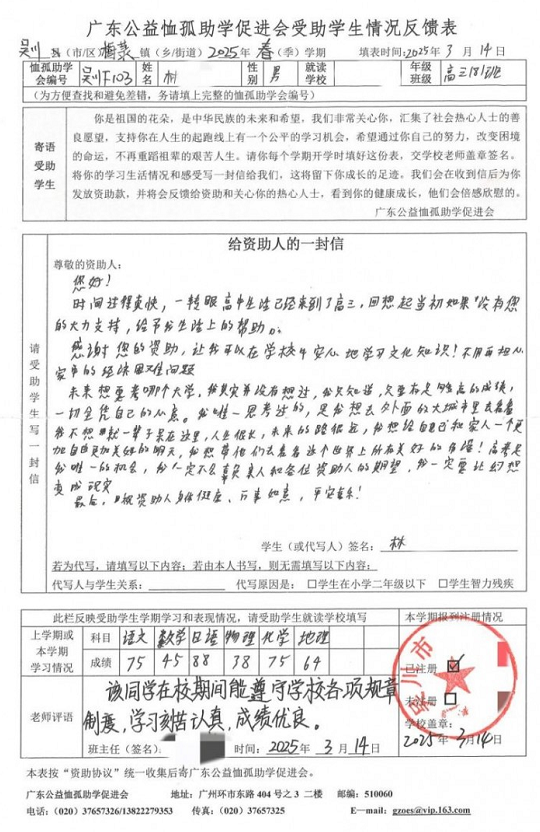 广东公益恤孤助学促进会受助学生情况反馈表
吴川 县(市/区) 梅菉 镇(乡/街道) 2025年 春(季)学期 填表时间:2025年 3月 14日
恤孤助学会编号 吴川F103 姓名 林 性别 男 就读学校 年级班级 高三18班
(为方便查找和避免差错,务请填上完整的恤孤助学会编号)
寄语受助学生
你是祖国的花朵,是中华民族的未来和希望,我们非常关心你,汇集了社会热心人士的善
良愿望,支持你在人生的起跑线上有一个公平的学习机会,希望通过你自己的努力,改变困境
的命运,不再重蹈祖辈的艰苦人生。请你每个学期开学时填好这份表,交学校老师盖章签名。
将你的学习生活情况和感受写一封信给我们,这将留下你成长的足迹,我们会在收到信后为你
发放资助款,并将会反馈给资助和关心你的热心人士,看到你的健康成长,他们会倍感欣慰的。
广东公益恤孤助学促进会
请受助学生写一封信
给资助人的一封信
尊敬的资助人:
您好!
时间过得真快,一转眼高中生活已经来到了高三,回想起当初如果没有您
的大力支持,给予我生活上的帮助
感谢您的资助,让我可以在学校中安心地学习文化知识!不用再担心
家中的经济困难问题
未来想要考哪个大学,我其实并没有想过,我只知道,只要有足够高的成绩,
一切全凭自己的心意。我唯一思考过的,是我想去外面的大城市里去看看
我不想就一辈子呆在这里,人生很长,未来的路很远,我想给自己和家人一个更
加自由更加美好的明天,我想带他们去看看这个世界上所有美好的角落!高考是
我唯一的机会,我一定不会辜负亲人和各位资助人的期望,我一定要让幻想
变成现实
最后,祝资助人身体健康、万事如意,平安喜乐!
学生(或代写人)签名: 林
若为代写,请填写以下内容;若由本人书写,则无需填写以下内容:
代写人与学生关系: 代写原因是: □学生在小学二年级以下 □学生智力残疾
此栏反映受助学生学期学习和表现情况,请受助学生就读学校填写 本学期报刊注册情况
上学期或本学期学习情况 科目 语文 数学 日语 物理 化学 地理
成绩 75 45 88 38 75 64
已注册 ☑
未注册 □
学校盖章:
2025年 3月 14日
吴川市
老师评语
该同学在校期间能遵守学校各项规章
制度,学习刻苦认真,成绩优良。
班主任(签名) 时间:2025年 3月 14日
本表按“资助协议”统一收集后寄广东公益恤孤助学促进会。
广东公益恤孤助学促进会 地址:广州环市东路 404 号之 3 二楼 邮编:510060
电话:(020)37657326/13822279353 传真:(020)37657325 E—mail: gzoes@vip.163.com